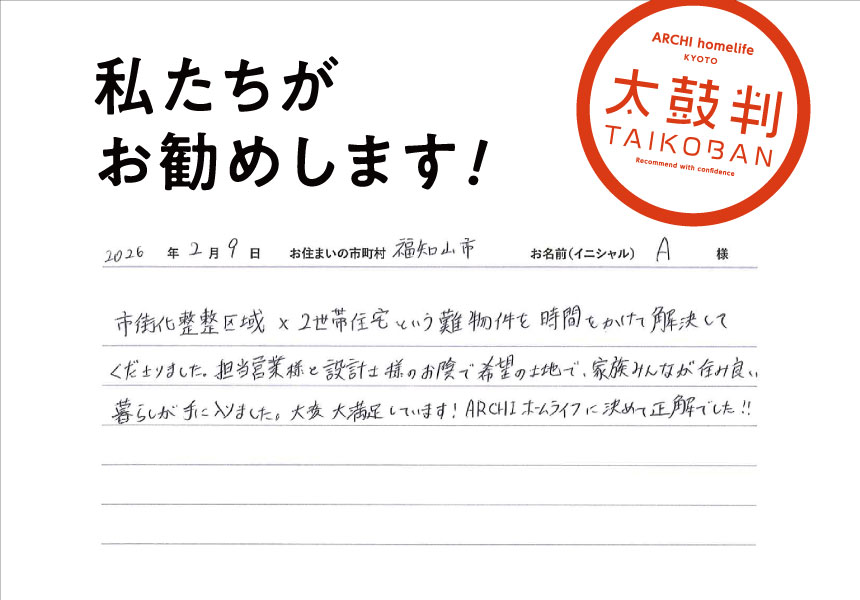 私たちが
お勧めします!
ARCHI homelife
KYOTO
太鼓判
TAIKOBAN
Recommend with confidence
2026 年 2 月 9 日 お住まいの市町村 福知山市 お名前(イニシャル) A 様
市街化整整区域 × 2世帯住宅という難物件を時間をかけて解決して
くださりました。担当営業様と設計士様のお陰で希望の土地で、家族みんなが住み良い
暮らしが手に入りました。大変大満足しています!ARCHIホームライフに決めて正解でした!!